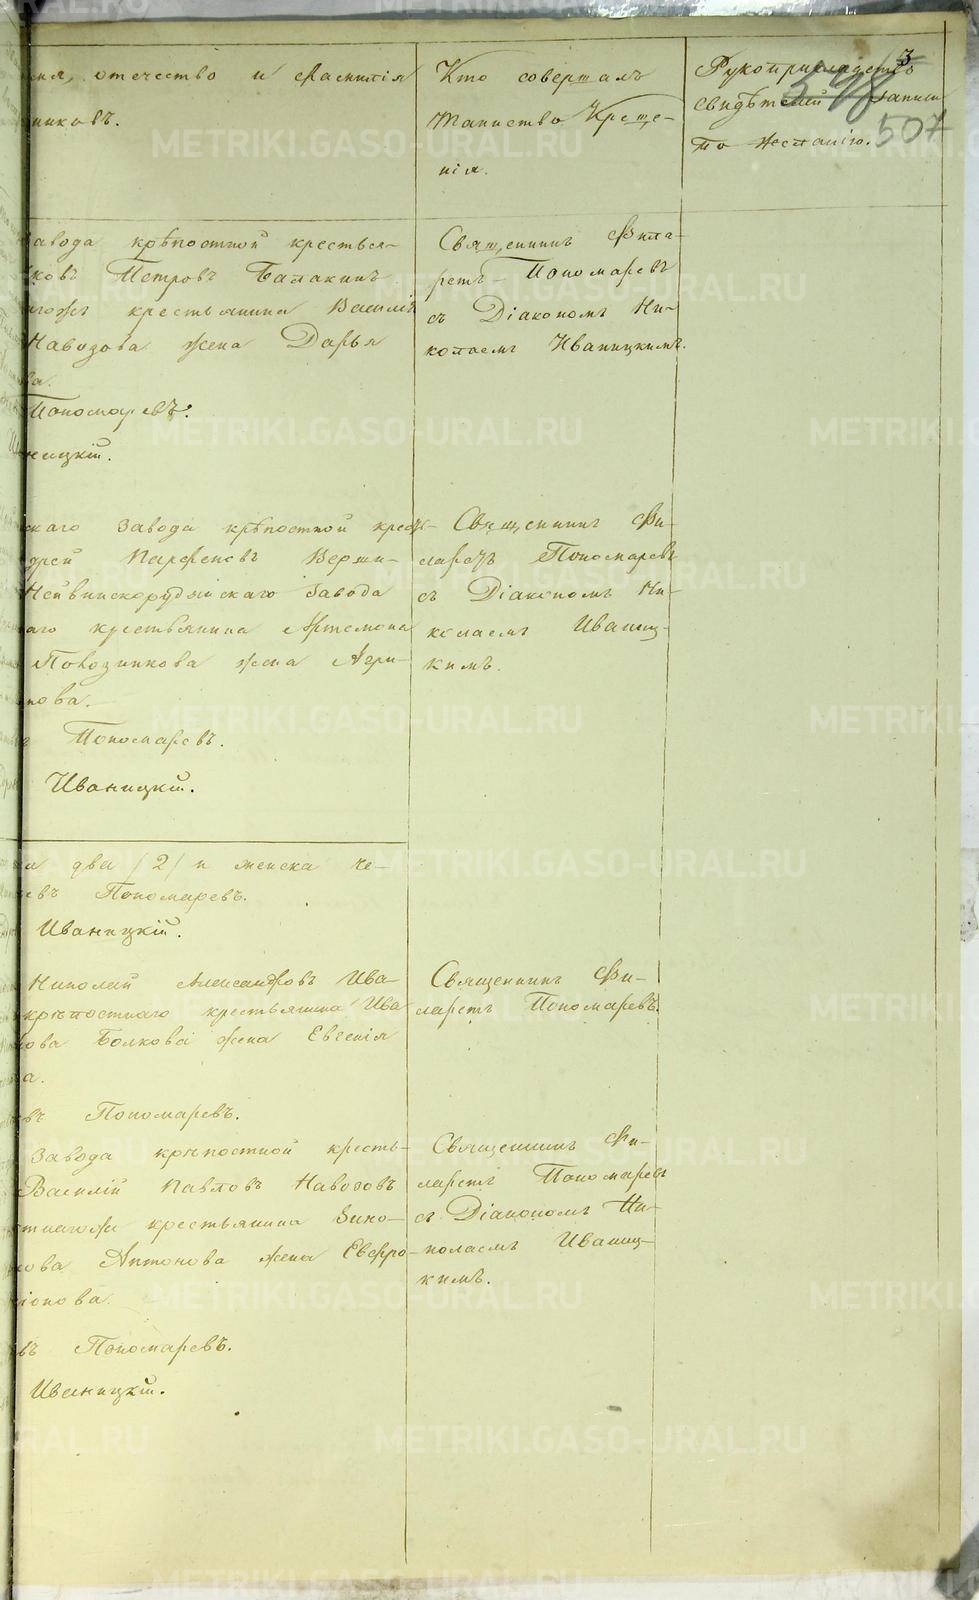 мя, отечество и фамилія
никовъ.
Кто совершалъ
таинство Креще-
нія.
Рукоприкладство
свидѣтелей записи
по желанію.
3
507
завода крѣпостной крестья-
ковъ Петровъ Балакинъ
тогожъ крестьянина Василія
Наводова жена Дарья
ва.
Пономаревъ.
ницкій.
Священникъ Фила-
ретъ Пономаревъ
съ Діакономъ Ни-
колаемъ Иваницкимъ.
скаго завода крѣпостной крест-
дрей Парфеновъ Верши-
Нейвинскорудянскаго завода
аго крестьянина Артемона
Повозчикова жена Агри-
нова.
Пономаревъ.
Иваницкій.
Священникъ Фи-
ларетъ Пономаревъ
съ Діакономъ Ни-
колаемъ Иваниц-
кимъ.
а два /2/ и женска че-
евъ Пономаревъ.
Иваницкій.
Николай Александровъ Ива-
крѣпостнаго крестьянина Ива
кова Волкова жена Евгенія
а.
въ Пономаревъ.
Священникъ Фи-
ларетъ Пономаревъ.
завода крѣпостной кресть-
Василій Павловъ Наводовъ
стнагожъ крестьянина Зино-
кова Антонова жена Евфро-
іонова.
въ Пономаревъ.
Иваницкій.
Священникъ Фи-
ларетъ Пономаревъ
съ Діакономъ Ни-
колаемъ Иваниц-
кимъ.
METRIKI.GASO-URAL.RU